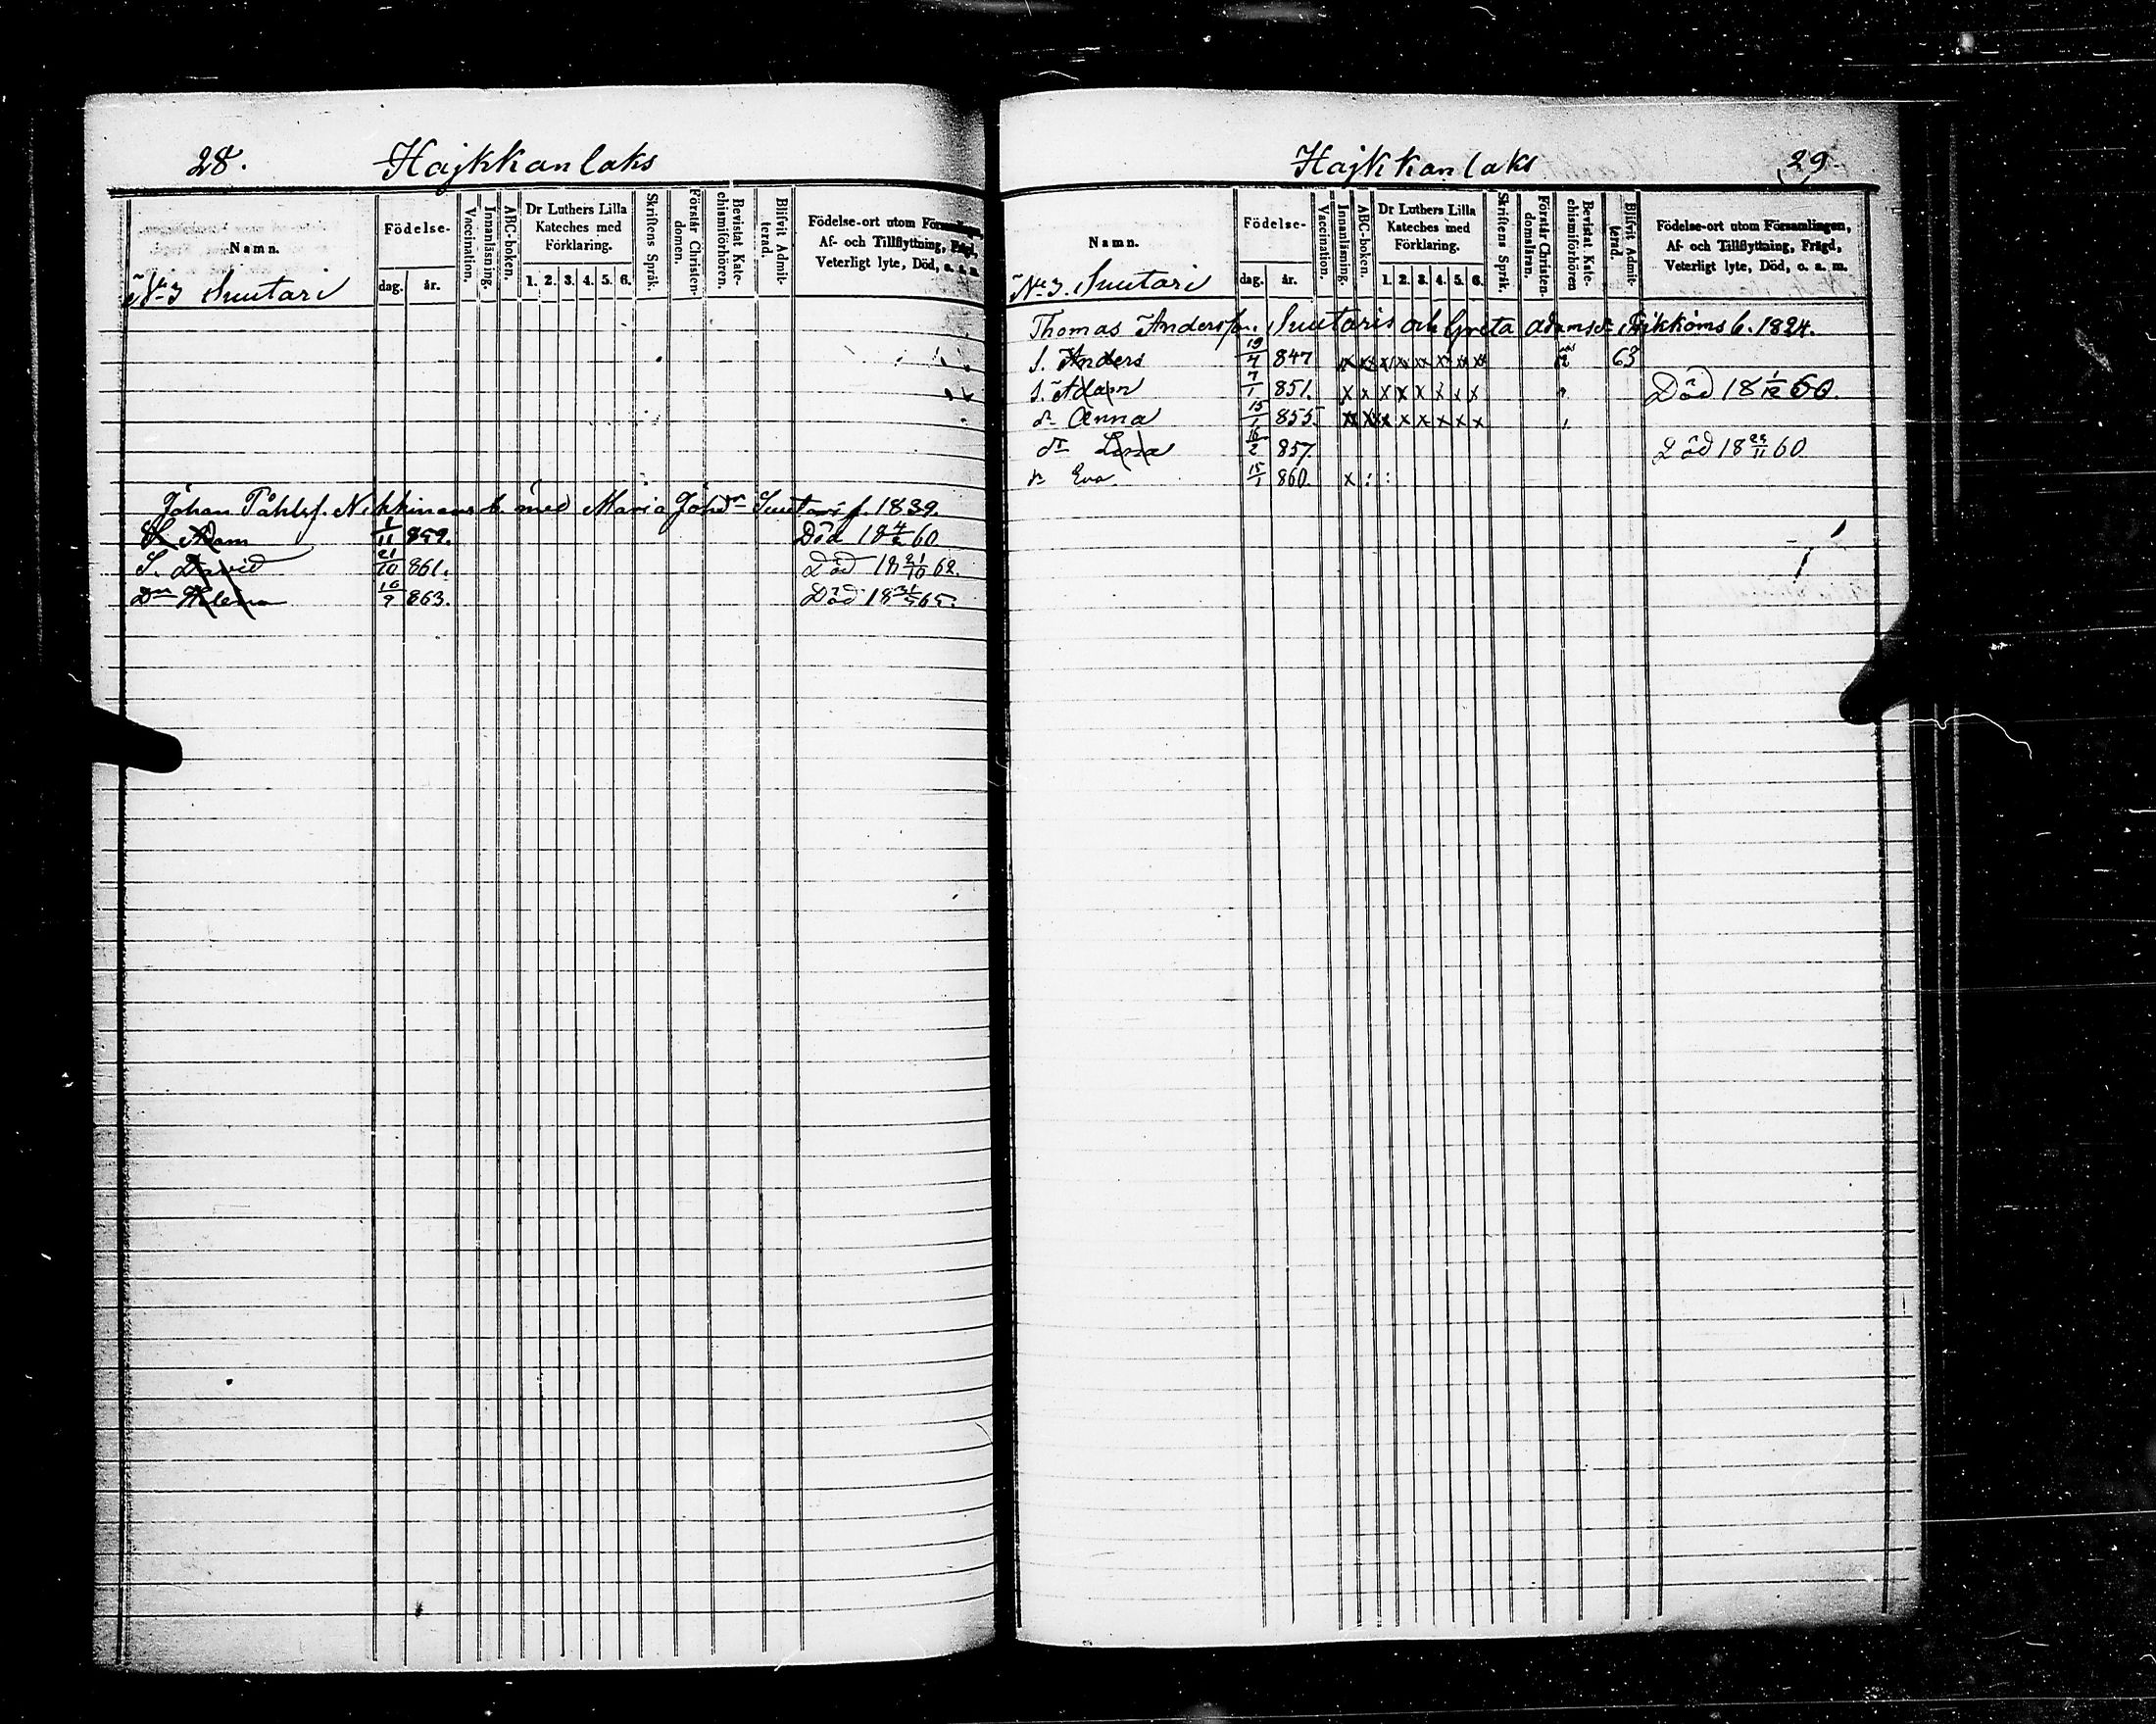 28. Hajkkanlaks
Namn. Födelse- Vaccination. Innanläsning. ABC-boken. Dr Luthers Lilla Kateches med Förklaring. Skriftens Språk. Förstår Christendomen. Bevistat Katechismiförhören. Blifvit Admitterad. Födelse-ort utom Församlingen, Af- och Tillflyttning, Frägd, Veterligt lyte, Död, o. a. m.
dag. år. 1. 2. 3. 4. 5. 6.
No 3 Suutari
Johan Påhlsf. Nikkinens b. med Maria Johdr Suutari f. 1839.
S. Adam 1/11 859. Död 18 60
S. David 21/10 861. Död 18 21/10 62.
Dr Helena 16/9 863. Död 18 31/5 65.
Hajkkanlaks 29
Namn. Födelse- Vaccination. Innanläsning. ABC-boken. Dr Luthers Lilla Kateches med Förklaring. Skriftens Språk. Förstår Christendomsläran. Bevistat Katechismiförhören Blifvit Admitterad. Födelse-ort utom Församlingen, Af- och Tillflyttning, Frägd, Veterligt lyte, Död, o. a. m.
dag. år. 1. 2. 3. 4. 5. 6.
No 3. Suutari
Thomas Andersson. Suutaris och Greta Adamsdr b. 1824.
S. Anders 19/4 847 x x x x x x x x 63
S. Adam 7/1 851. x x x x x x x x Död 18 1/12 60.
dr Anna 15/1 855. x x x x x x x x
dr Lena 16/2 857. Död 18 29/11 60
dr Eva 15/1 860. x : :